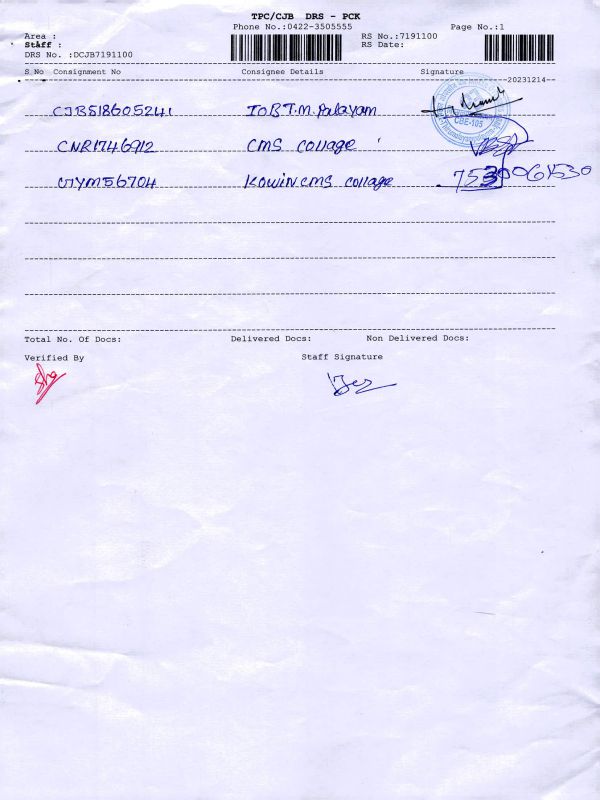 TPC/CJB DRS - PCK
Phone No.:0422-3505555 Page No.:1
Area : RS No.:7191100
Staff : RS Date:
DRS No. :DCJB7191100
S No Consignment No Consignee Details Signature
20231214
CJB518605241 IOB T.M. Palayam
CBE-105
CNR1746912 CMS collage
CTYM56704 KOWIN.CMS collage
Total No. Of Docs: Delivered Docs: Non Delivered Docs:
Verified By Staff Signature